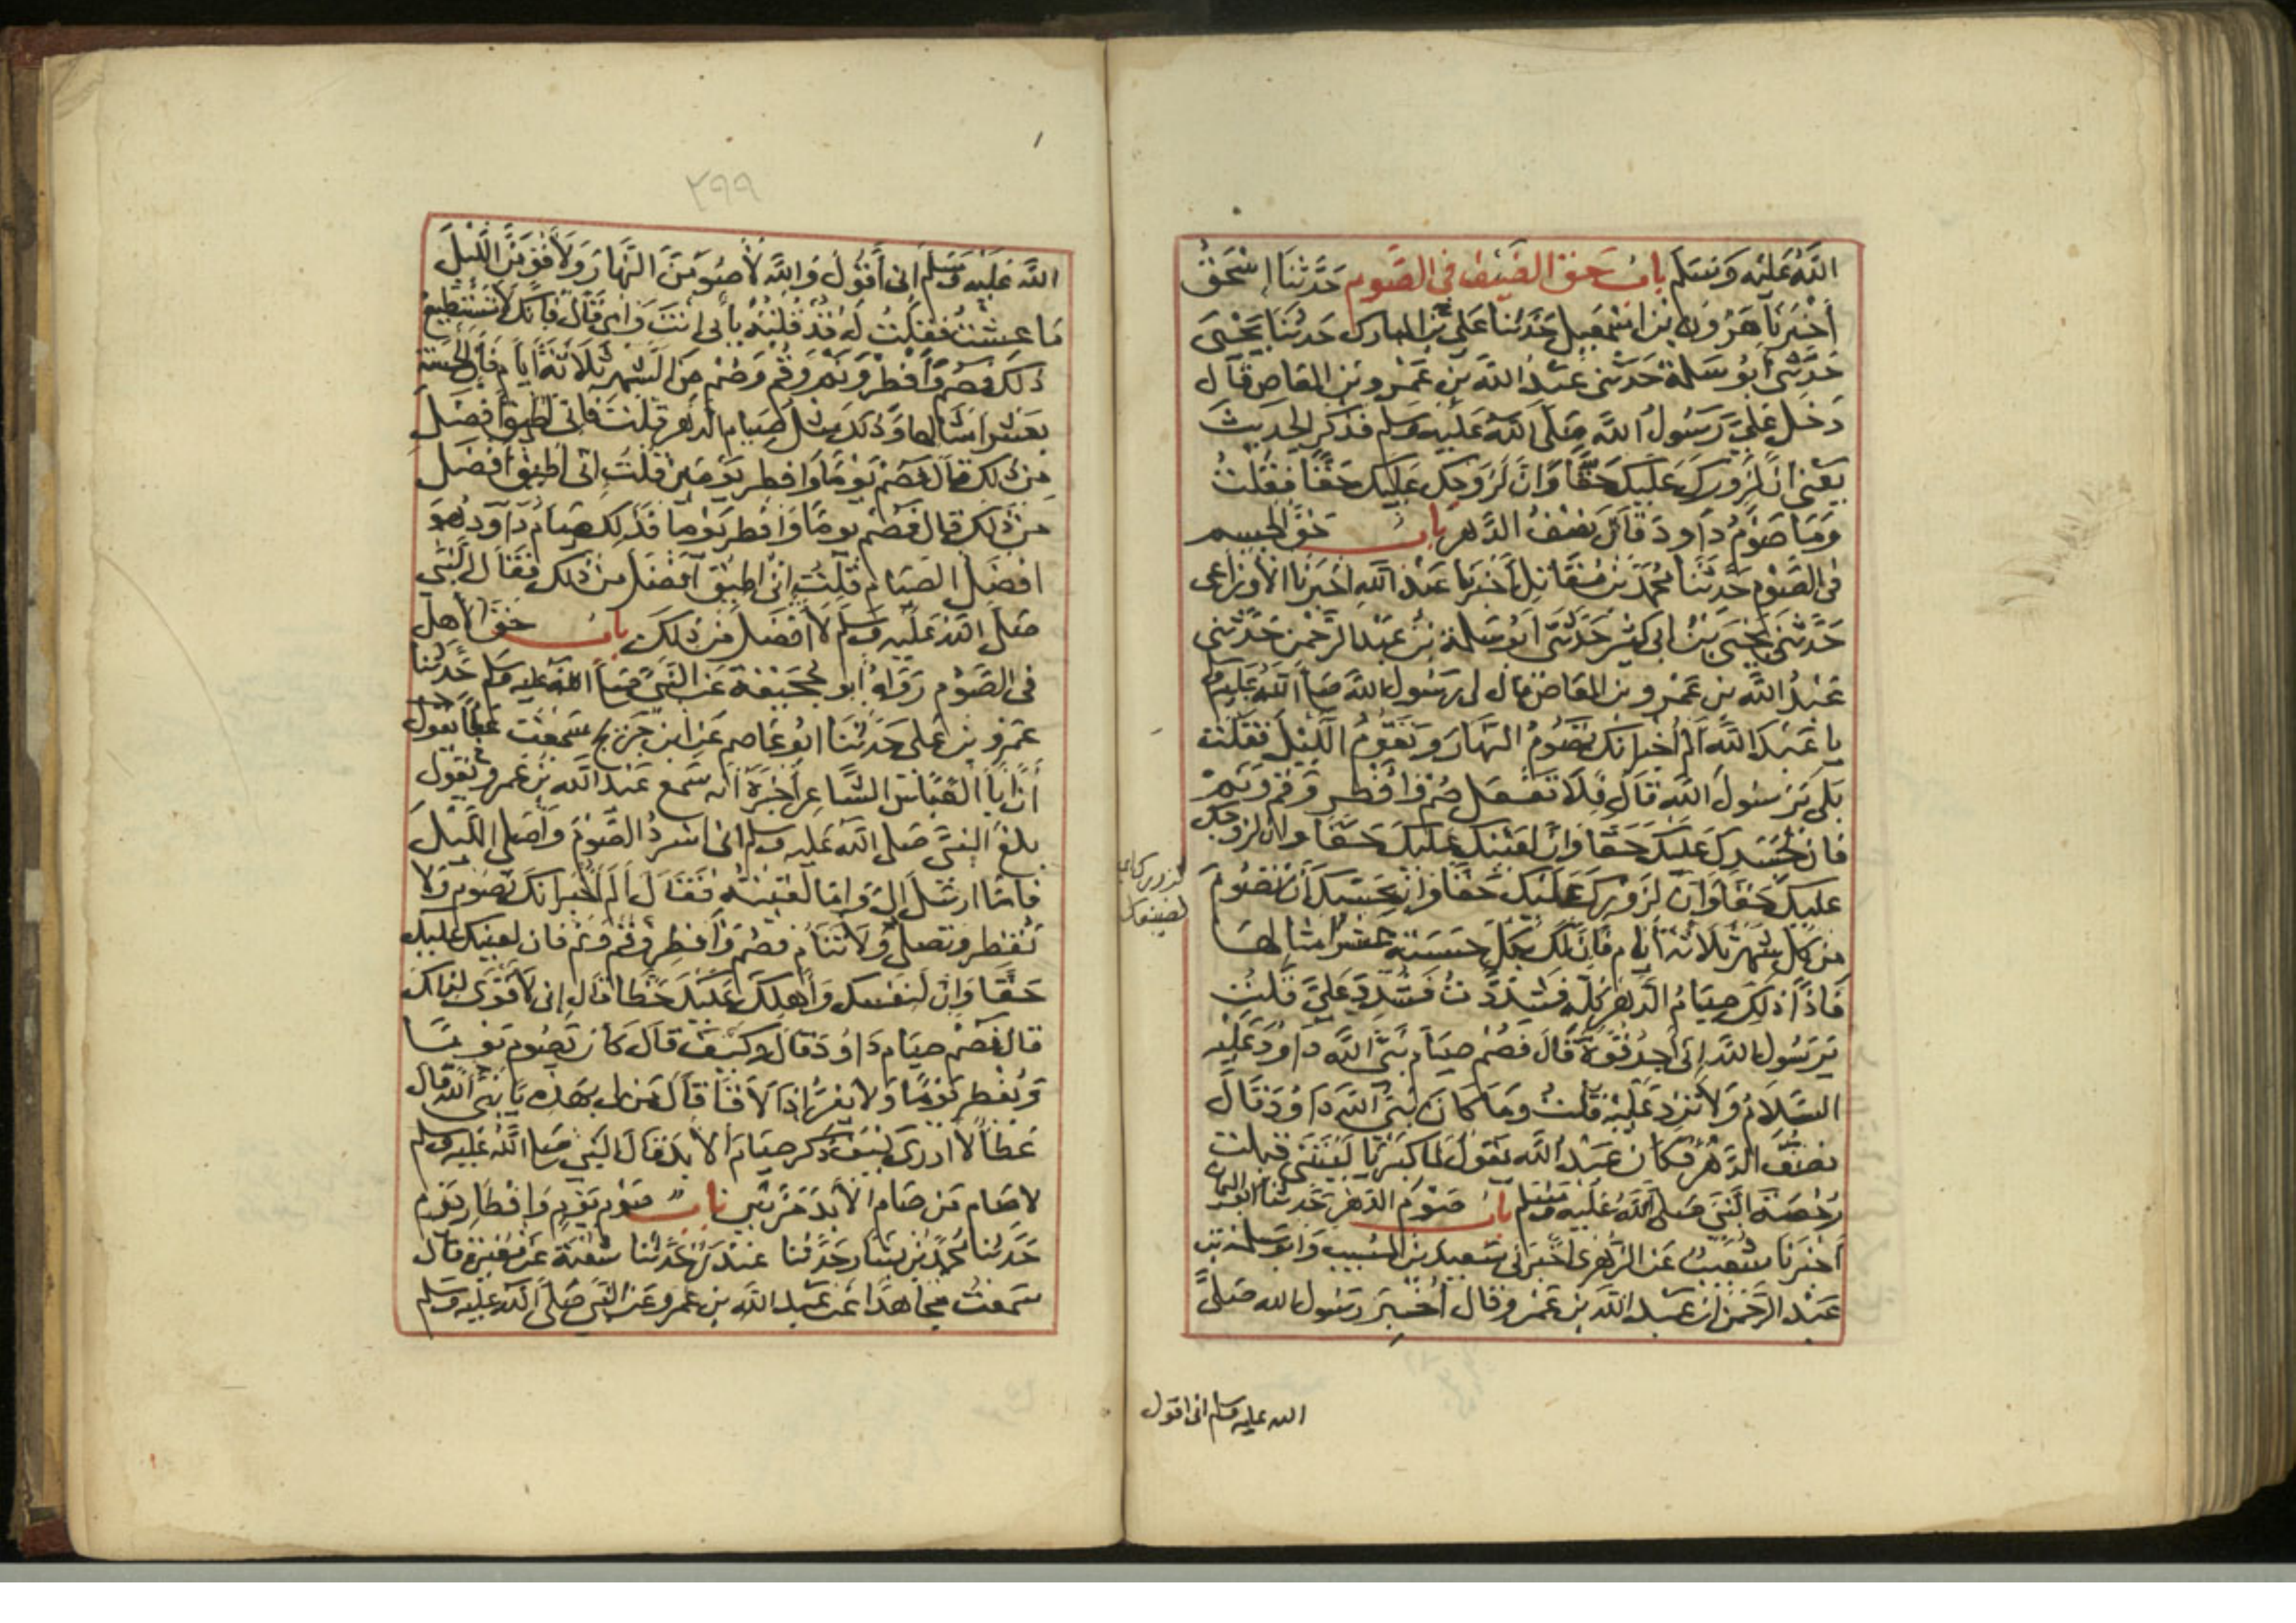 الله عليه وسلم باب حق الضيف في الصوم حدثنا اسحق
أخبرنا هرون بن اسمعيل حدثنا علي بن المبارك حدثنا يحيى
حدثني أبو سلمة حدثني عبد الله بن عمرو بن العاص قال
دخل علي رسول الله صلى الله عليه وسلم فذكر الحديث
يعني ان لزورك عليك حقا وان لزوجك عليك حقا فقلت
وما صوم داود قال نصف الدهر باب حق الجسم
في الصوم حدثنا محمد بن مقاتل أخبرنا عبد الله اخبرنا الأوزاعي
حدثني يحيى بن ابي كثير حدثني أبو سلمة بن عبد الرحمن حدثني
عبد الله بن عمرو بن العاص قال لي رسول الله صلى الله عليه وسلم
يا عبد الله ألم أخبر انك تصوم النهار وتقوم الليل فقلت
بلى يرسول الله قال فلا تفعل صم وأفطر وقم ونم
فان لجسدك عليك حقا وان لعينك عليك حقا وان لزوجك
عليك حقا وان لزورك عليك حقا وان بحسبك أن تصوم
من كل شهر ثلاثة أيام فان لك بكل حسنة عشر امثالها
فاذا ذلك صيام الدهر كله فشددت فشدد علي قلت
يرسول الله إني أجد قوة قال فصم صيام نبي الله داود عليه
السلام ولا تزد عليه قلت وما كان نبي الله داود قال
نصف الدهر فكان عبد الله يقول لما كبر يا ليتني قبلت
رخصة النبي صلى الله عليه وسلم باب صوم الدهر حدثنا ابو اليمان
أخبرنا شعيب عن الزهري اخبرني سعيد بن المسيب وابو سلمة بن
عبد الرحمن ان عبد الله بن عمرو قال أخبر رسول الله صلى
لزورك اي
لضيفك
الله عليه وسلم اني اقول
٢٩٩
الله عليه وسلم اني أقول والله لأصومن النهار ولأقومن الليل
ما عشت فقلت له قد قلته بأبي أنت وامي قال فانك لا تستطيع
ذلك فصم وأفطر ونم وقم وصم من الشهر ثلاثة أيام فان الحسنة
بعشر امثالها وذلك مثل صيام الدهر قلت فاني اطيق أفضل
من ذلك قال فصم يوما وافطر يومين قلت اني اطيق افضل
من ذلك قال فصم يوما وافطر يوما فذلك صيام داود وهو
افضل الصيام قلت اني اطيق افضل من ذلك فقال النبي
صلى الله عليه وسلم لا أفضل من ذلك باب حق الأهل
في الصوم رواه أبو جحيفة عن النبي صلى الله عليه وسلم حدثنا
عمرو بن علي حدثنا ابو عاصم عن ابن جريج سمعت عطاء يقول
أن أبا العباس الشاعر أخبره أنه سمع عبد الله بن عمرو يقول
بلغ النبي صلى الله عليه وسلم اني اسرد الصوم وأصلي الليل
فاما ارسل الي واما لقيته فقال ألم أخبر انك تصوم ولا
تفطر وتصلي ولا تنام فصم وأفطر وقم ونم فان لعينك عليك
حقا وان لنفسك وأهلك عليك حظا قال إني لأقوى لذلك
قال فصم صيام داود قال وكيف قال كان يصوم يوما
ويفطر يوما ولا يفر إذا لاقى قال من لي بهذه يا نبي الله قال
عطاء لا ادري كيف ذكر صيام الأبد قال النبي صلى الله عليه وسلم
لا صام من صام الأبد مرتين باب صوم يوم وافطار يوم
حدثنا محمد بن بشار حدثنا غندر حدثنا شعبة عن مغيرة قال
سمعت مجاهدا عن عبد الله بن عمرو عن النبي صلى الله عليه وسلم